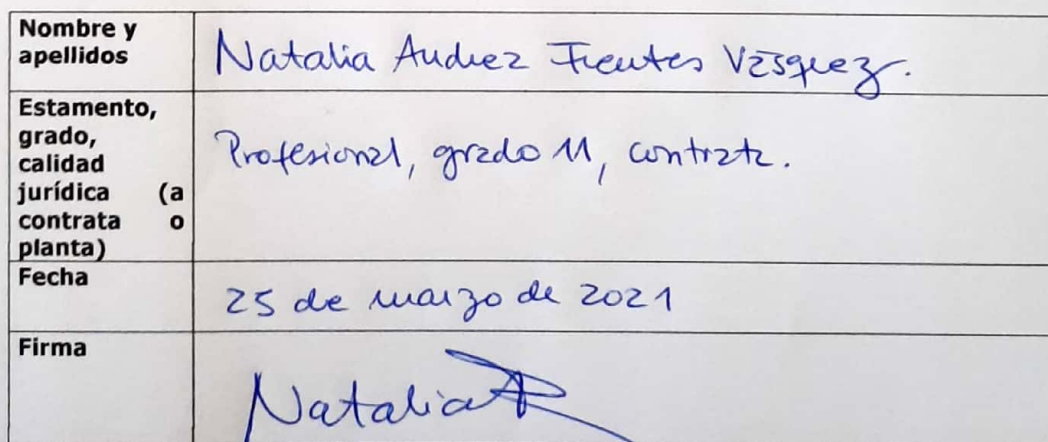 Nombre y
apellidos
Natalia Andrea Fuentes Vásquez.
Estamento,
grado,
calidad
jurídica (a
contrata o
planta)
Profesional, grado 11, contrata.
Fecha
25 de marzo de 2021
Firma
Natalia F